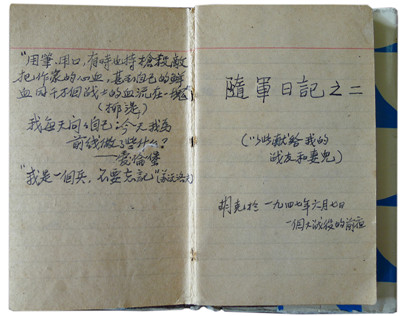 “用筆、用口、有時也持槍殺敵
把作家的心血，甚和自己的鮮
血同千万個战士的血流在一塊”
（挪洗）
我每天问自己：今天我為
前线做了些什么？
——爱倫堡
“我是一個兵，不要忘記”
隨軍日記之二
（以此献給我的
战友和妻兒）
胡克 一九四七年六月七日
一個大战役的前夜